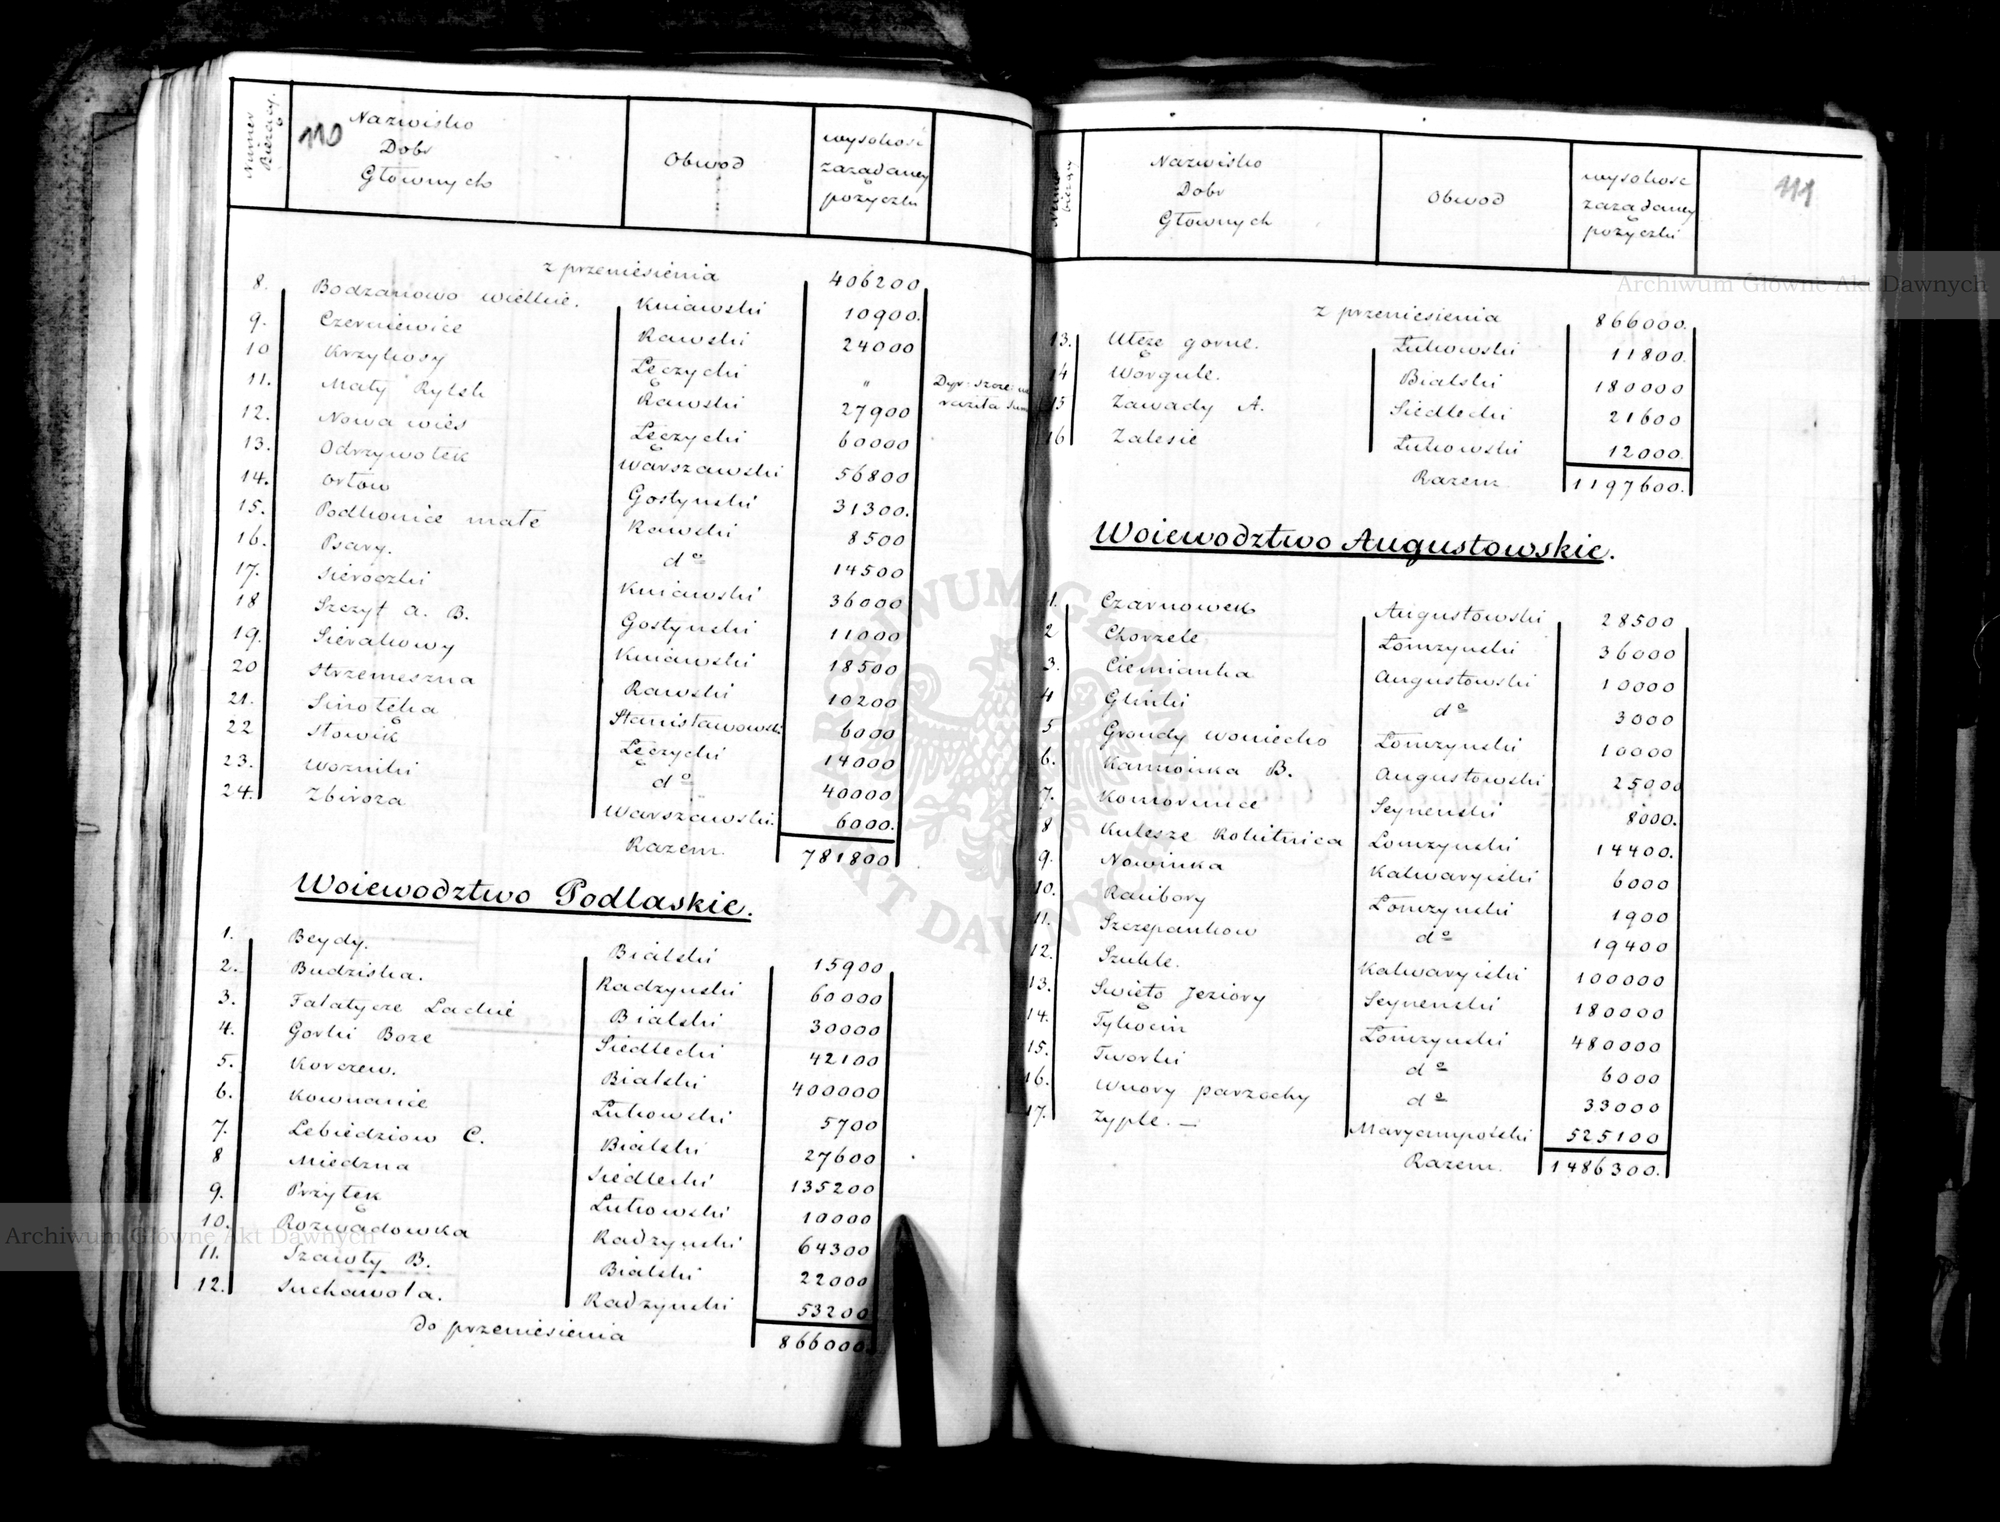 110
Numer Bieżący.
Nazwisko
Dobr
Głównych
Obwod
wysokość
zażądaney
pożyczki
z przeniesienia 406200
8. Bodzanowo wielkie. Kuiawski 10900.
9. Czerniewice Rawski 24000
10 Krzykosy Łęczycki "
11. Mały Rylsk Rawski 27900
12. Nowa wies Łęczycki 60000
13. Odrzywołek Warszawski 56800
14. Orłow Gostynski 31300.
15. Podkonice małe Rawski 8500
16. Psary. do 14500
17. Sieroczki Kuiawski 36000
18 Szczyt A. B. Gostynski 11000
19. Sierakowy Kuiawski 18500
20 Strzemeszna Rawski 10200
21. Sinołęka Stanisławowski 6000
22 Słowik Łęczycki 14000
23. Wozniki do 40000
24. Zbiroza Warszawski. 6000.
Razem. 781800
Woiewodztwo Podlaskie.
1. Beydy. Bialski 15900
2. Budziska. Radzynski 60000
3. Falatycze Ladne Bialski 30000
4. Gorki Boze Siedlecki 42100
5. Korczew. Bialski 400000
6. Kownanice Łukowski 5700
7. Lebiedziow C. Bialski 27600
8 Miedzna Siedlecki 135200
9. Przytek Łukowski 10000
10. Rozwadowka Radzynski 64300
11. Szawły B. Bialski 22000
12. Suchawola. Radzynski 53200
do przeniesienia 866000.
111
Nazwisko
Dobr
Głownych
Obwod
wysokosc
zażądaney
pożyczki
z przeniesienia 866000.
13. Ulęże gorne. Łukowski 11800.
14 Worgule. Bialski 180000
15 Zawady A. Siedlecki 21600
16 Zalesie Łukowski 12000.
Razem 1197600.
Woiewodztwo Augustowskie.
1. Czarnowek Augustowski 28500
2 Chorzele Łomzynski 36000
3. Ciemianka Augustowski 10000
4 Glinki do 3000
5 Grondy woniecko Łomzynski 10000
6. Kamionka B. Augustowski 25000
7. Komornice Seynenski 8000.
8 Kulesze Rokitnica Łomzynski 14400.
9. Nowinka Kalwaryiski 6000
10. Raubory Łomzynski 1900
11. Szczepankow do 19400
12. Szukle. Kalwaryiski 100000
13. Swięto Jeziory Seynenski 180000
14. Tykocin Łomzynski 480000
15. Tworki do 6000
16. Wnory parzochy do 33000
17. Zyple. — Maryampolski 525100
Razem. 1486300.
Archiwum Główne Akt Dawnych
Archiwum Główne Akt Dawnych
ARCHIWUM GŁÓWNE AKT DAWNYCH